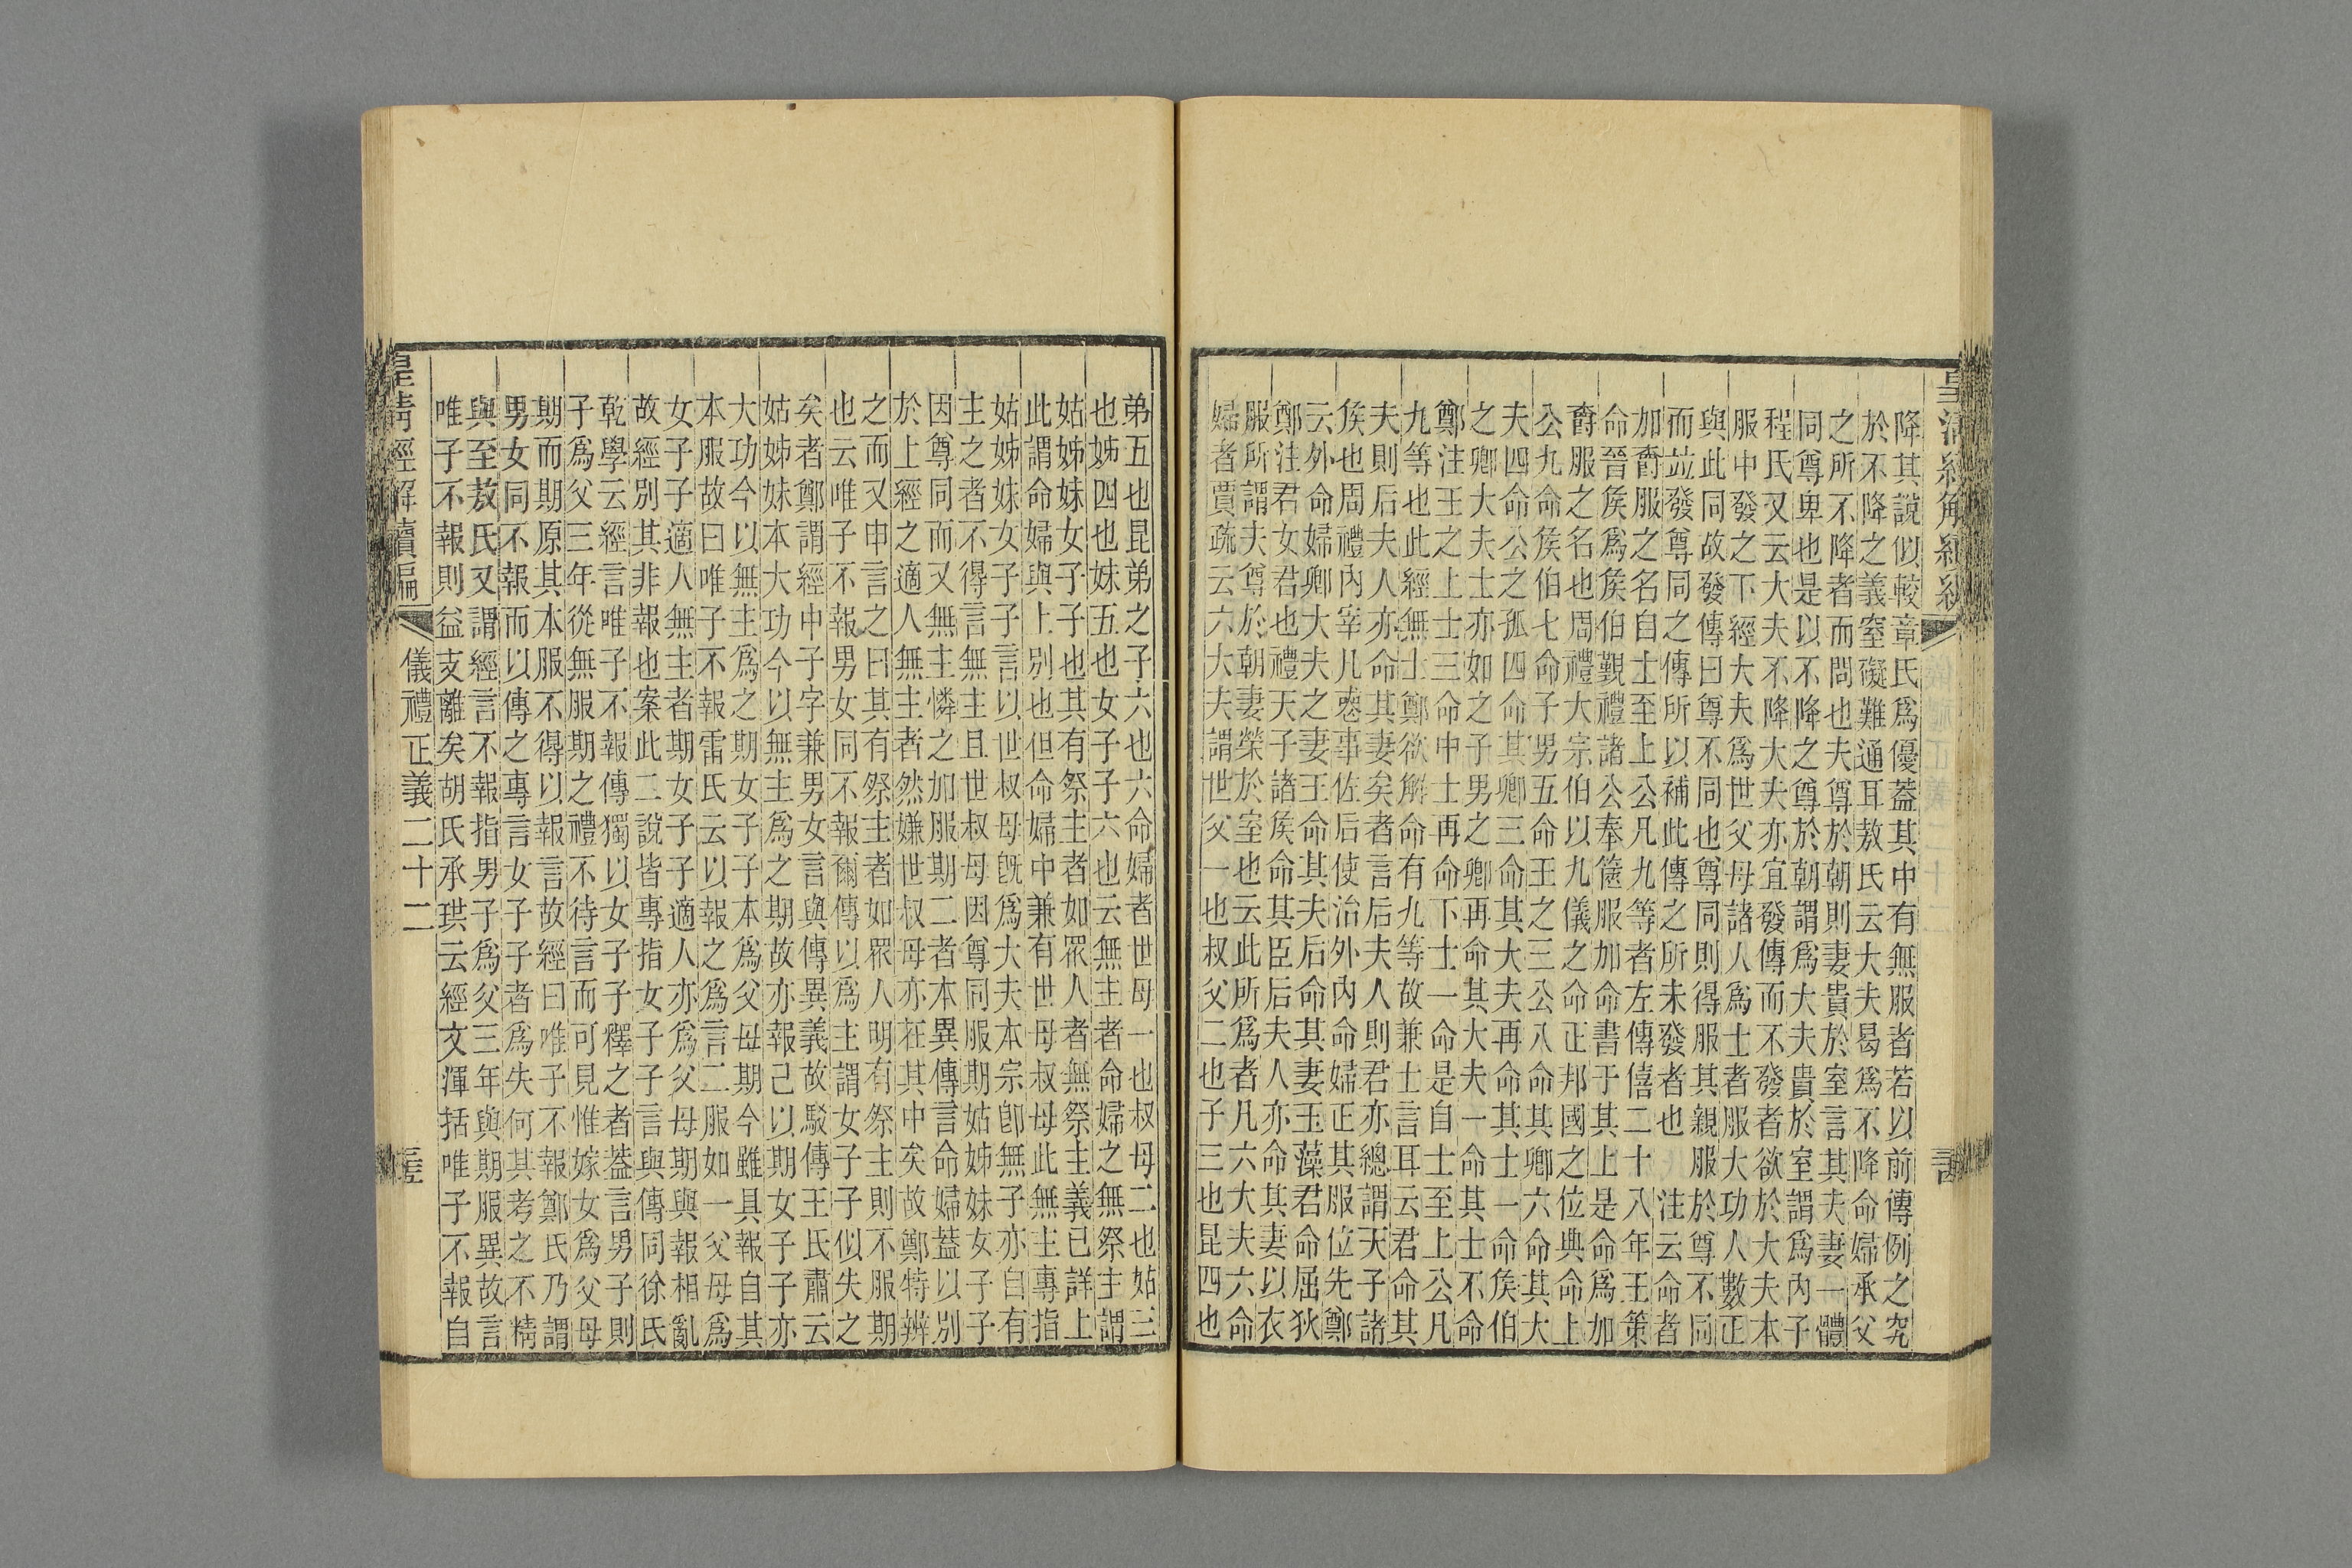 降其說似較章氏爲優葢其中有無服者若以前傳例之究
於不降之義窒礙難通耳敖氏云大夫曷爲不降命婦承父
之所不降者而問也夫尊於朝則妻貴於室言其夫妻一體
同尊卑也是以不降之尊於朝謂爲大夫貴於室謂爲內子
程氏又云大夫不降大夫亦宜發傳而不發者欲於大夫本
服中發之下經大夫爲世父母諸人爲士者服大功人數正
與此同故發傳曰尊不同也尊同則得服其親服於尊不同
而竝發尊同之傳所以補此傳之所未發者也 注云命者
加爵服之名自士至上公凡九等者左傳僖二十八年王策
命晉矦爲矦伯覲禮諸公奉篋服加命書于其上是命爲加
爵服之名也周禮大宗伯以九儀之命正邦國之位典命上
公九命矦伯七命子男五命王之三公八命其卿六命其大
夫四命公之孤四命其卿三命其大夫再命其士一命矦伯
之卿大夫士亦如之子男之卿再命其大夫一命其士不命
鄭注王之上士三命中士再命下士一命是自士至上公凡
九等也此經無士鄭欲解命有九等故兼士言耳云君命其
夫則后夫人亦命其妻矣者言后夫人則君亦總謂天子諸
矦也周禮內宰凡喪事佐后使治外內命婦正其服位先鄭
云外命婦卿大夫之妻王命其夫后命其妻玉藻君命屈狄
鄭注君女君也禮天子諸矦命其臣后夫人亦命其妻以衣
服所謂夫尊於朝妻榮於室也云此所爲者凡六大夫六命
婦者賈疏云六大夫謂世父一也叔父二也子三也昆四也
弟五也昆弟之子六也六命婦者世母一也叔母二也姑三
也姊四也妹五也女子子六也云無主者命婦之無祭主謂
姑姊妹女子子也其有祭主者如眾人者無祭主義已詳上
此謂命婦與上別也但命婦中兼有世母叔母此無主專指
姑姊妹女子子言以世叔母旣爲大夫本宗卽無子亦自有
主之者不得言無主且世叔母因尊同服期姑姊妹女子子
因尊同而又無主憐之加服期二者本異傳言命婦葢以別
於上經之適人無主者然嫌世叔母亦在其中矣故鄭特辨
之而又申言之曰其有祭主者如眾人明有祭主則不服期
也云唯子不報男女同不報爾傳以爲主謂女子子似失之
矣者鄭謂經中子字兼男女言與傳異義故駮傳王氏肅云
姑姊妹本大功今以無主爲之期故亦報己以期女子子亦
大功今以無主爲之期女子子本爲父母期今雖具報自其
本服故曰唯子不報雷氏云以報之爲言二服如一父母爲
女子子適人無主者期女子子適人亦爲父母期與報相亂
故經別其非報也案此二說皆專指女子子言與傳同徐氏
乾學云經言唯子不報傳獨以女子子釋之者葢言男子則
子爲父三年從無服期之禮不待言而可見惟嫁女爲父母
期而期原其本服不得以報言故經曰唯子不報鄭氏乃謂
男女同不報而以傳之專言女子子者爲失何其考之不精
與至敖氏又謂經言不報指男子爲父三年與期服異故言
唯子不報則益支離矣胡氏承珙云經文渾括唯子不報自
皇清經解續編
儀禮正義二十二